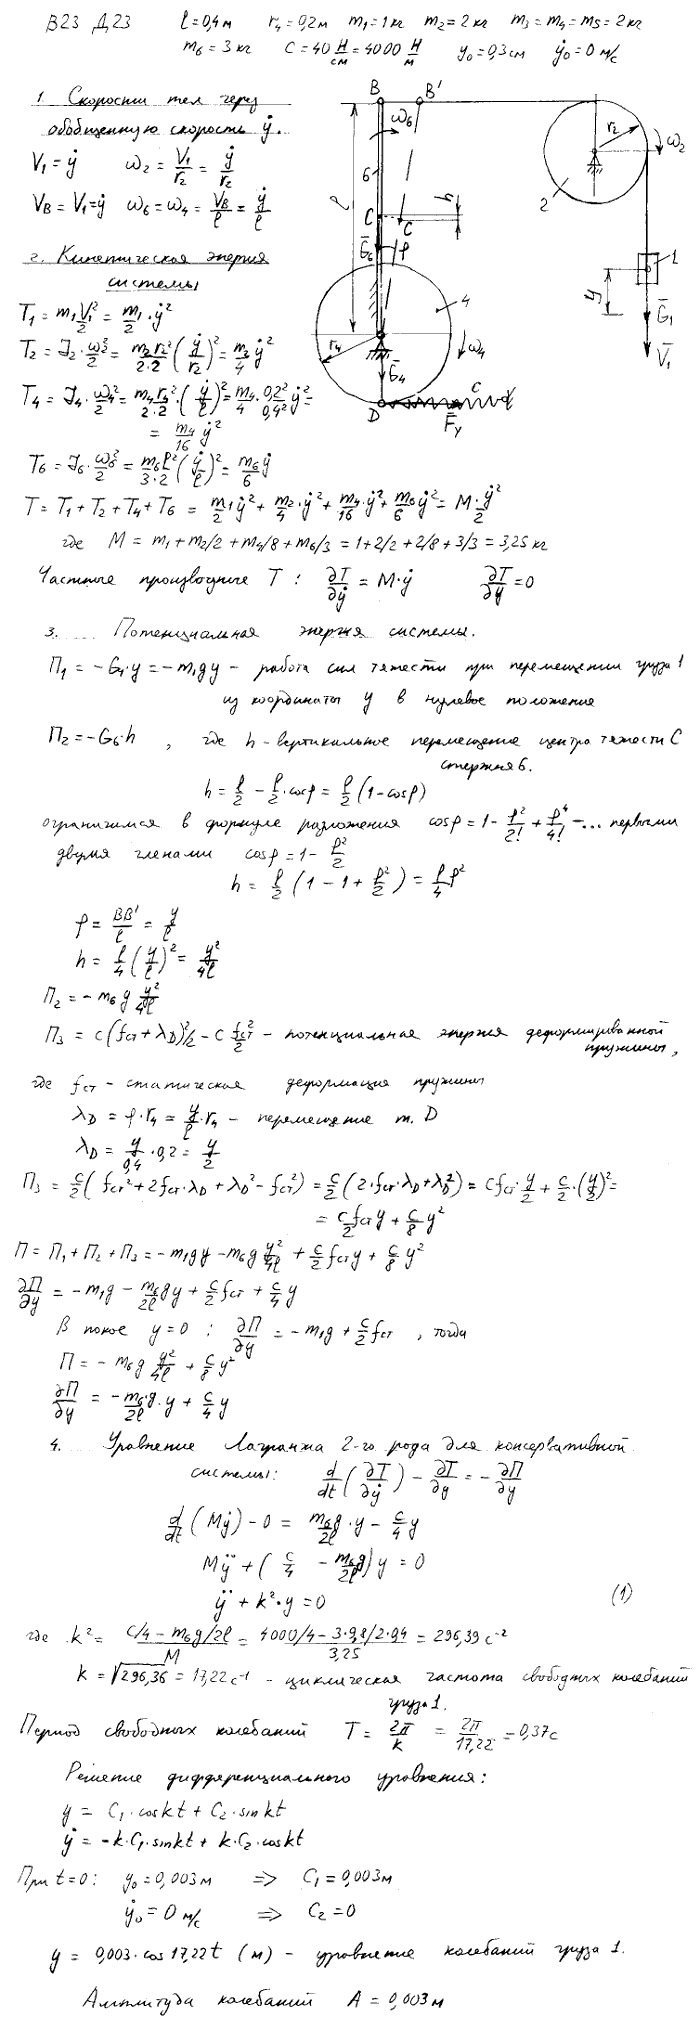 В23 Д23 l=0,4м r₄=0,2м m₁=1кг m₂=2кг m₃=m₄=m₅=2кг
m₆=3кг C=40 Н/см=4000 Н/м y₀=0,3см ẏ₀=0 м/с
1. Скорости тел через
обобщенную скорость ẏ.
V₁=ẏ ω₂=V₁/r₂=ẏ/r₂
V_B=V₁=ẏ ω₆=ω₄=V_B/l=ẏ/l
B B' ω₆ r₂ ω₂
6 l 2
C C h
Ḡ₆ φ 1
4 y Ḡ₁
r₄ ω₄ V̄₁
Ḡ₄ C
D F̄у
2. Кинетическая энергия
системы
T₁=m₁V₁²/2=m₁/2·ẏ²
T₂=J₂·ω₂²/2=m₂r₂²/2·2(ẏ/r₂)²=m₂/4 ẏ²
T₄=J₄·ω₄²/2=m₄r₄²/2·2·(ẏ/l)²=m₄/4·0,2²/0,4² ẏ²=
=m₄/16 ẏ²
T₆=J₆·ω₆²/2=m₆l²/3·2(ẏ/l)²=m₆/6 ẏ
T=T₁+T₂+T₄+T₆=m₁/2 ẏ²+m₂/4·ẏ²+m₄/16·ẏ²+m₆/6 ẏ²=M·ẏ²/2
где M=m₁+m₂/2+m₄/8+m₆/3=1+2/2+2/8+3/3=3,25кг
Частные производные T: ∂T/∂ẏ=M·ẏ ∂T/∂y=0
3. ... Потенциальная энергия системы.
П₁=-G₁·y=-m₁gy - работа сил тяжести при перемещении груза 1
из координаты y в нулевое положение
П₂=-G₆·h, где h-вертикальное перемещение центра тяжести C
стержня 6.
h=l/2-l/2·cosφ=l/2(1-cosφ)
ограничимся в формуле разложения cosφ=1-φ²/2!+φ⁴/4!-... первыми
двумя членами cosφ=1-φ²/2
h=l/2(1-1+φ²/2)=l/4φ²
φ=BB'/l=y/l
h=l/4(y/l)²=y²/4l
П₂=-m₆g y²/4l
П₃=c(fст+λ_D)²/2-c fст²/2 - потенциальная энергия деформированной
пружины,
где fст-статическая деформация пружины
λ_D=φ·r₄=y/l·r₄ - перемещение т.D
λ_D=y/0,4·0,2=y/2
П₃=c/2(fст²+2fст·λ_D+λ_D²-fст²)=c/2(2·fст·λ_D+λ_D²)=cfст·y/2+c/2·(y/2)²=
=c/2 fст y+c/8 y²
П=П₁+П₂+П₃=-m₁gy-m₆g y²/4l+c/2 fст y+c/8 y²
∂П/∂y=-m₁g-m₆/2l gy+c/2 fст+c/4 y
В покое y=0: ∂П/∂y=-m₁g+c/2 fст, тогда
П=-m₆g y²/4l+c/8 y²
∂П/∂y=-m₆·g/2l·y+c/4 y
4. ... Уравнение Лагранжа 2-го рода для консервативной
системы: d/dt(∂T/∂ẏ)-∂T/∂y=-∂П/∂y
d/dt(Mẏ)-0=m₆g/2l·y-c/4 y
Mÿ+(c/4-m₆g/2l)y=0
ÿ+k²·y=0 (1)
где k²=(c/4-m₆g/2l)/M=(4000/4-3·9,8/2·0,4)/3,25=296,39с⁻²
k=√296,36=17,22с⁻¹ - циклическая частота свободных колебаний
груза 1.
Период свободных колебаний T=2π/k=2π/17,22=0,37с
Решение дифференциального уровнения:
y=C₁·coskt+C₂·sinkt
ẏ=-k·C₁·sinkt+k·C₂·coskt
При t=0: y₀=0,003м => C₁=0,003м
ẏ₀=0 м/с => C₂=0
y=0,003·cos17,22t (м) - уровнение колебаний груза 1.
Амплитуда колебаний A=0,003м